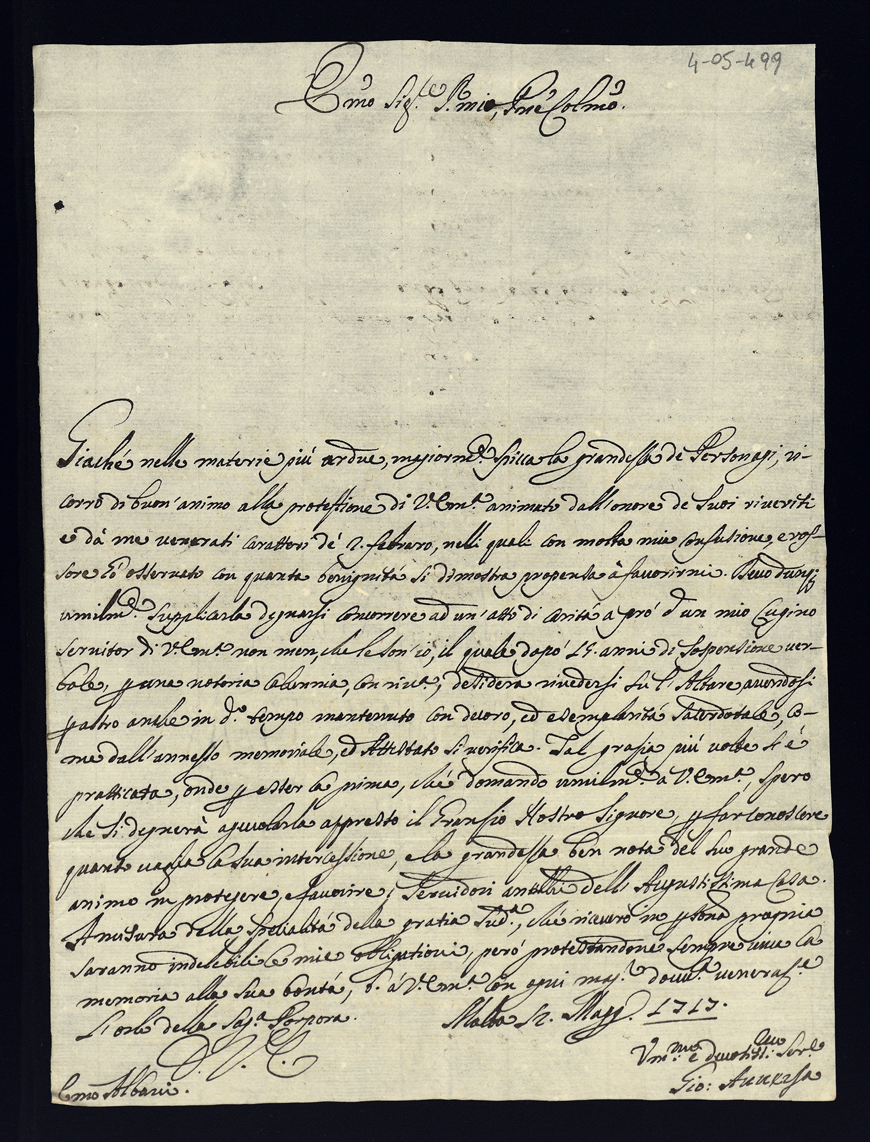 4-05-499
Emo Sig.re P.mio, Pne Colmo.
Giaché nelle materie più ardue, magiorm.te spicca la grandessa de Personagi, ri-
corro di buon'animo alla protessione di V. Em.a animato dall'onore de suoi riveriti
e dà me venerati caratteri de' 2. febraro, nelli quali con molta mia confusione, e ros-
sore hò osservato con quanta benignità si dimostra propensa à favorirmi. Devo dunq;
umilm.te supplicarla degnarsi concorrere ad un'atto di carità a prò d'un mio Cugino
servitor di V. Em.a non men, che le son'io, il quale dopò 15. anni di sospensione ver-
bale, p una notoria calunnia, con desidera rivedersi sul'Altare avendosi
p altro anche in d.o tempo mantenuto con decoro, ed esemplarità sacerdotale, co-
me dall'annesso memoriale, ed Attestato si verifica. Tal grasia più volte s'è
pratticata, onde p esser la prima, che domando umilm.te a V. Em.a, spero
che si degnerà agevolarla appresso il Gransio Nostro Signore, p far conoscere
quanto vaglia la sua intercessione, e la grandessa ben nota del suo grande
animo in protegere, e favorire i servidori antichi dell'Augustissima Casa.
A misura della specialità della gratia sud.a, che riceverò in psona propria
saranno indelebili le mie obligationi, però protestandone sempre viva la
memoria alla sua bontà, à V. Em.a con ogni mag.r dovut.a veneraz.e
l'orlo della Sag.a Porpora. Malta 12. Magg. 1717.
D. V. E.
Um.mo e devotiss.mo Ser.re
Emo Albani. Gio: